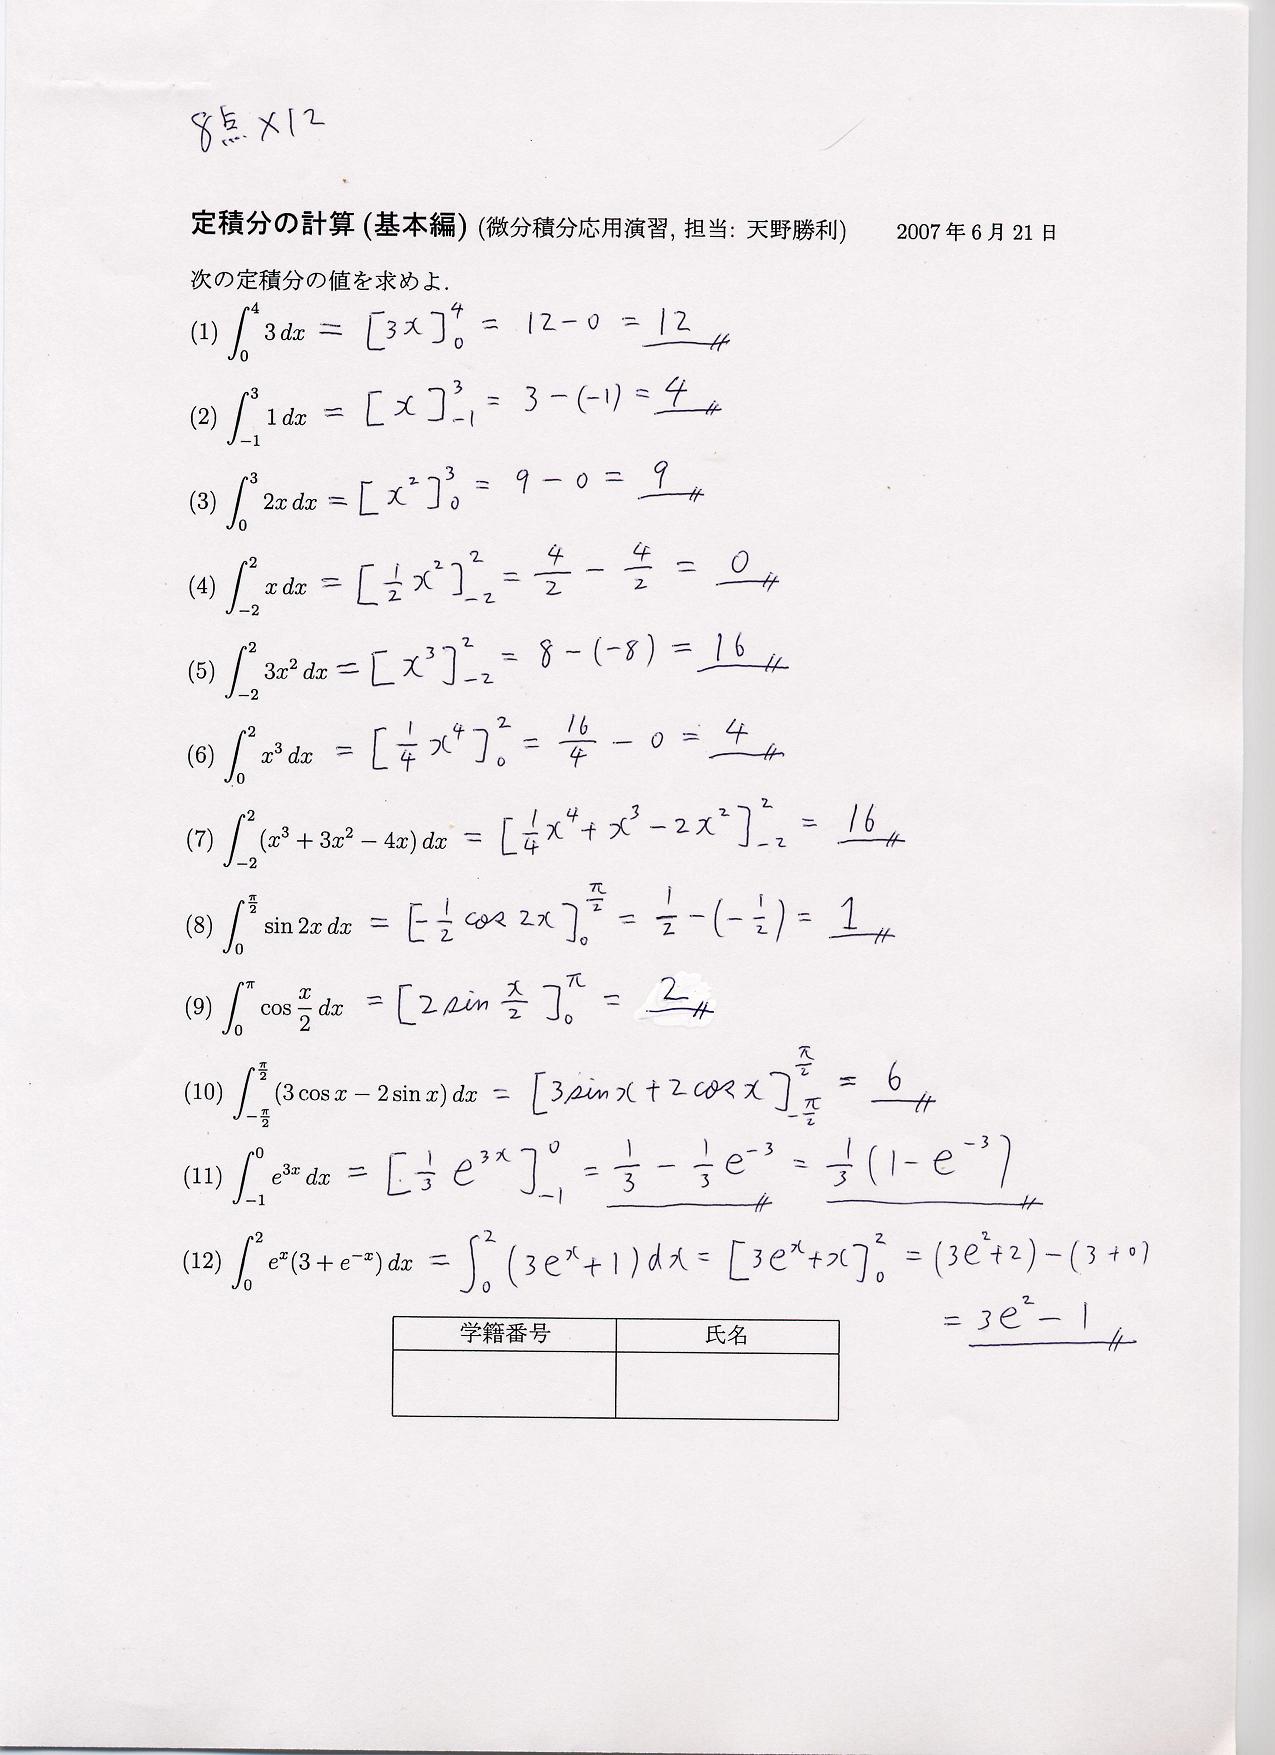 8点×12
定積分の計算 (基本編) (微分積分応用演習, 担当: 天野勝利) 2007 年 6 月 21 日
次の定積分の値を求めよ.
(1) ∫_0^4 3 dx = [3x]_0^4 = 12 - 0 = 12
(2) ∫_{-1}^3 1 dx = [x]_{-1}^3 = 3 - (-1) = 4
(3) ∫_0^3 2x dx = [x^2]_0^3 = 9 - 0 = 9
(4) ∫_{-2}^2 x dx = [1/2 x^2]_{-2}^2 = 4/2 - 4/2 = 0
(5) ∫_{-2}^2 3x^2 dx = [x^3]_{-2}^2 = 8 - (-8) = 16
(6) ∫_0^2 x^3 dx = [1/4 x^4]_0^2 = 16/4 - 0 = 4
(7) ∫_{-2}^2 (x^3 + 3x^2 - 4x) dx = [1/4 x^4 + x^3 - 2x^2]_{-2}^2 = 16
(8) ∫_0^{π/2} sin 2x dx = [-1/2 cos 2x]_0^{π/2} = 1/2 - (-1/2) = 1
(9) ∫_0^π cos x/2 dx = [2 sin x/2]_0^π = 2
(10) ∫_{-π/2}^{π/2} (3 cos x - 2 sin x) dx = [3 sin x + 2 cos x]_{-π/2}^{π/2} = 6
(11) ∫_{-1}^0 e^{3x} dx = [1/3 e^{3x}]_{-1}^0 = 1/3 - 1/3 e^{-3} = 1/3 (1 - e^{-3})
(12) ∫_0^2 e^x(3 + e^{-x}) dx = ∫_0^2 (3e^x + 1) dx = [3e^x + x]_0^2 = (3e^2 + 2) - (3 + 0)
= 3e^2 - 1
学籍番号 氏名